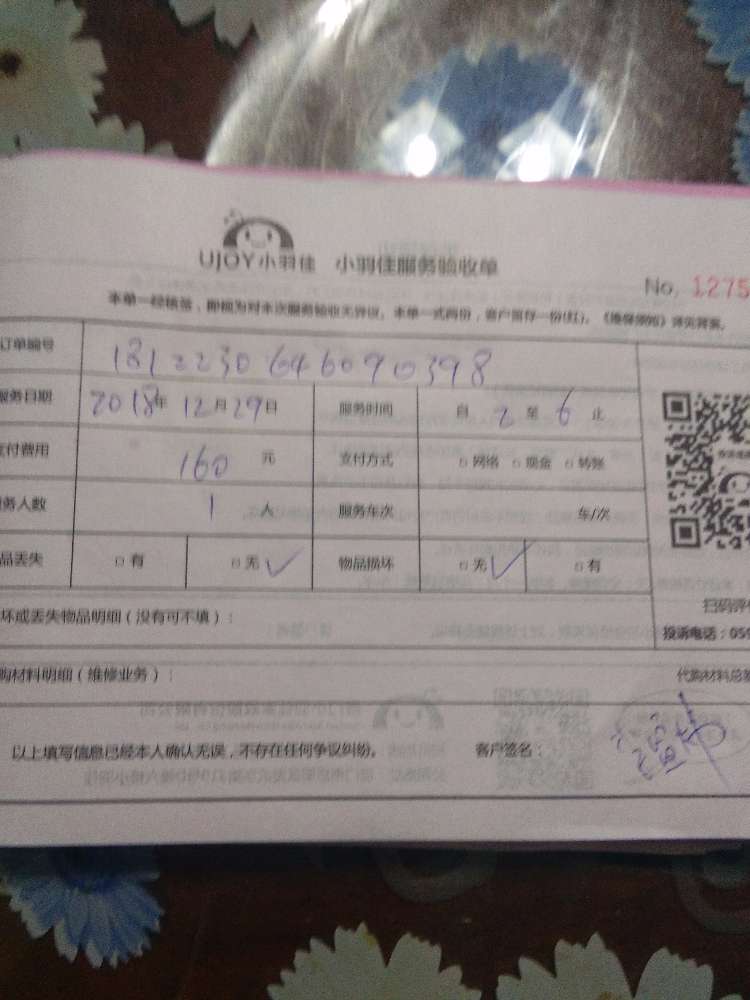 UJOY小羽佳 小羽佳服务验收单
No. 1275
本单一经核签，即视为对本次服务验收无异议。本单一式两份，客户留存一份(红)。《维保须知》详见背案。
订单编号 181223064609 0398
服务日期 2018年 12月29日 服务时间 自 2 至 6 止
支付费用 160 元 支付方式 □网络 □现金 □转账
服务人数 1 人 服务车次 车/次
品丢失 □有 □无√ 物品损坏 □无√ □有
扫码评
坏或丢失物品明细（没有可不填）：
投诉电话：059
购材料明细（维修业务）： 代购材料总
以上填写信息已经本人确认无误，不存在任何争议纠纷。 客户签名：